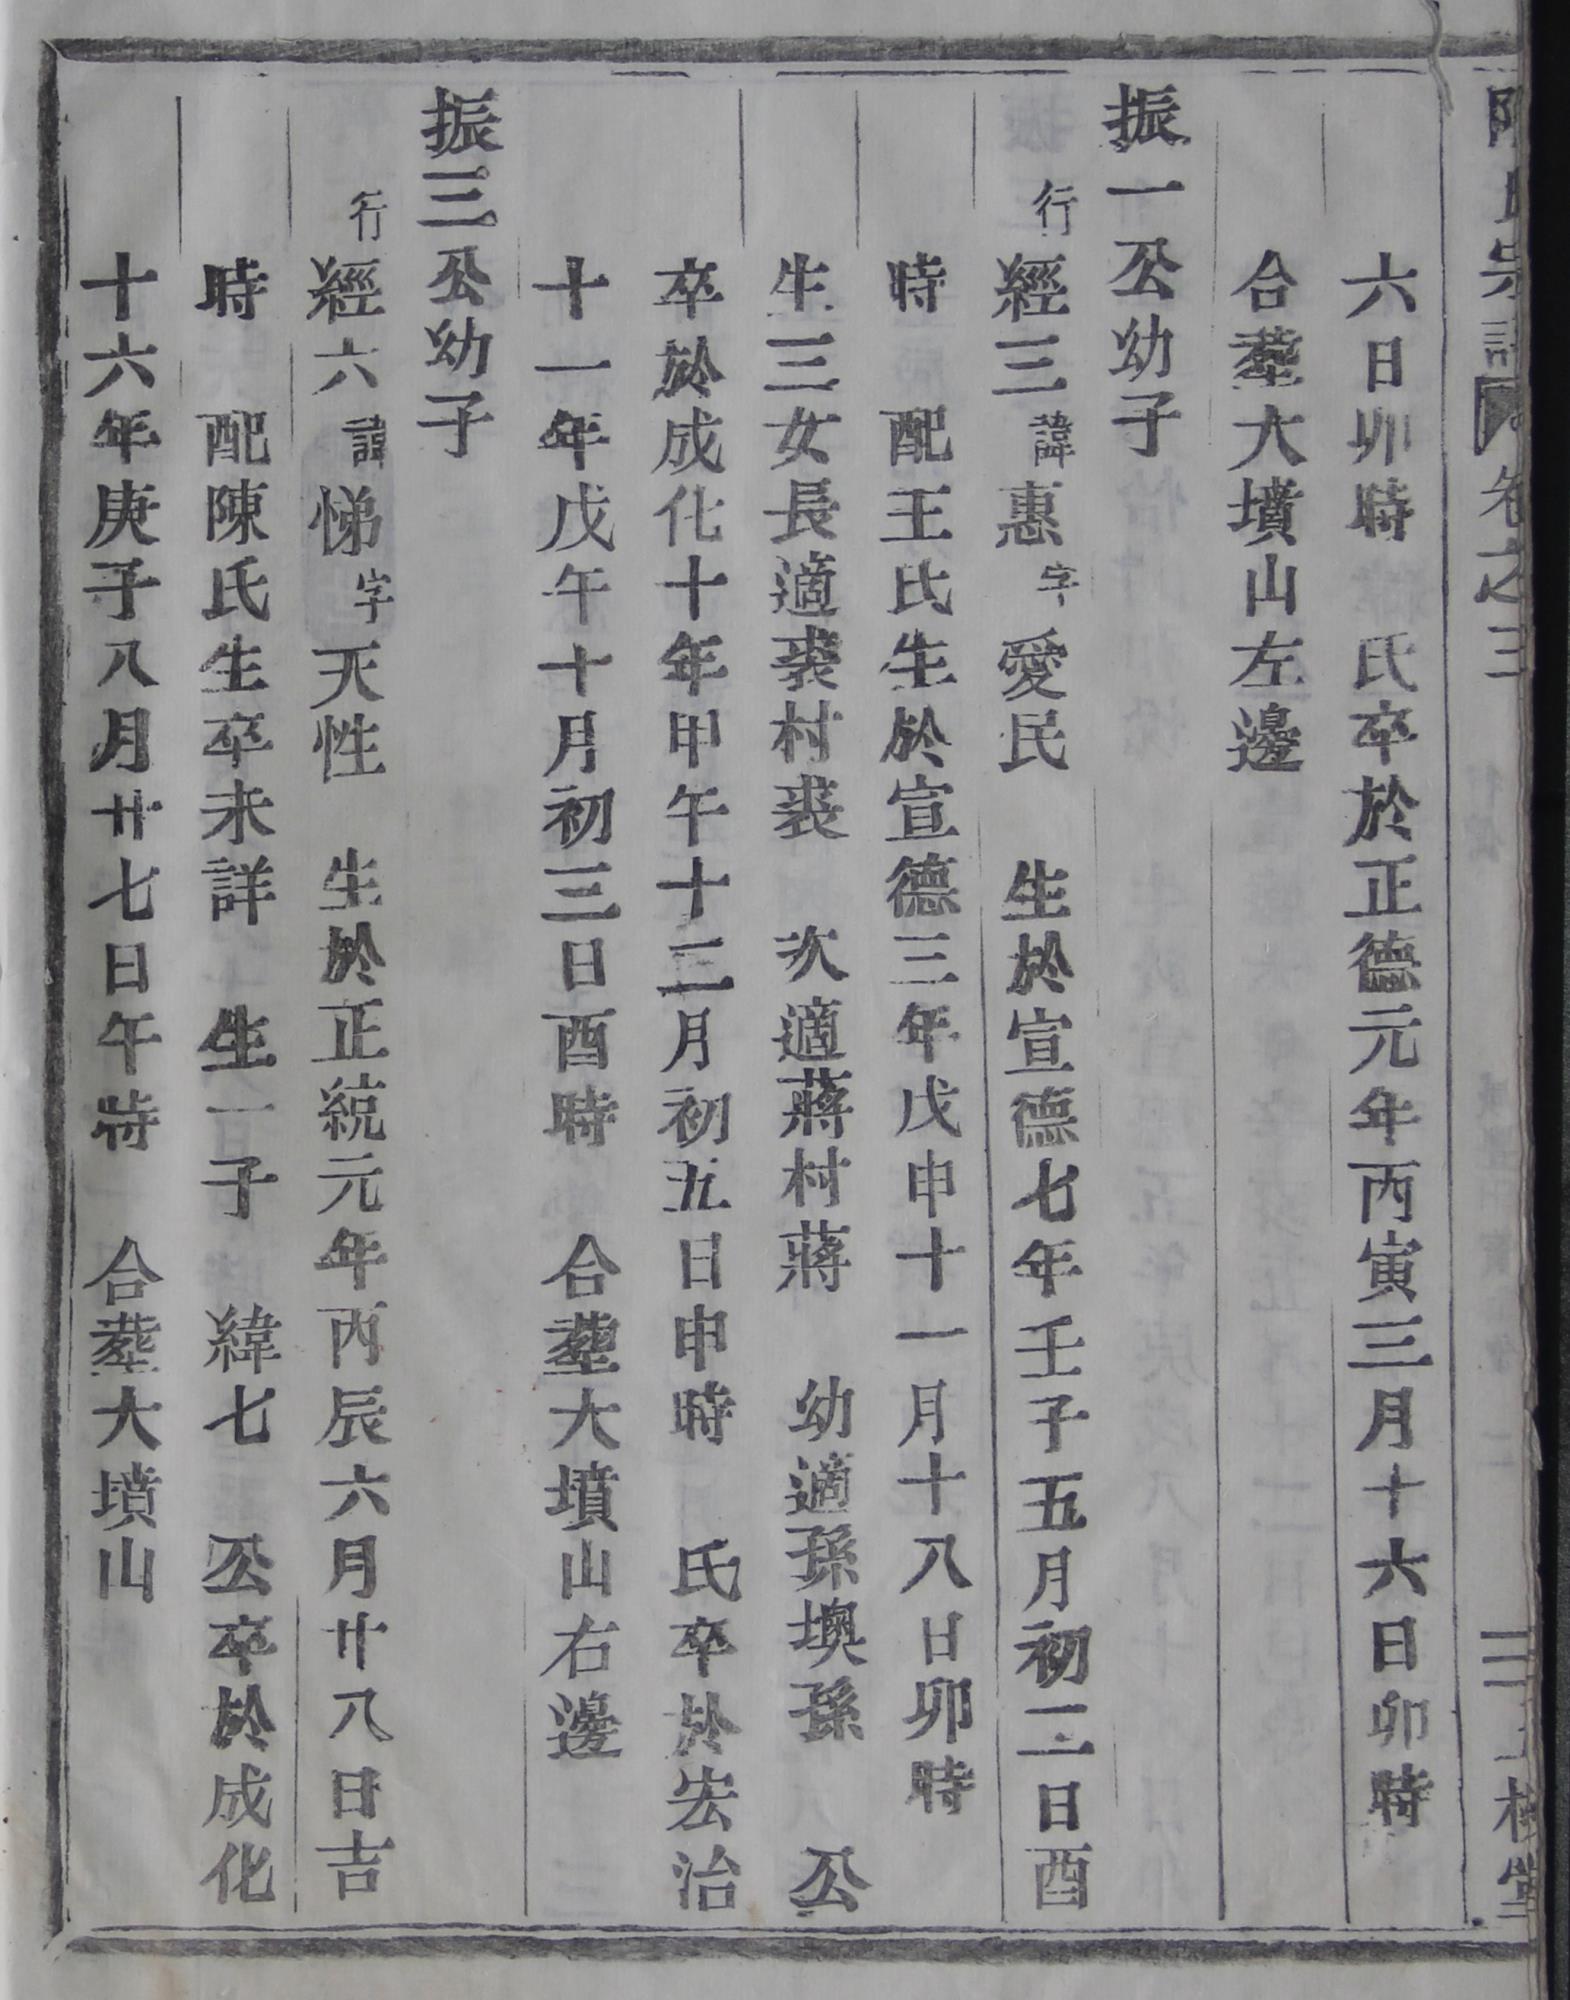 氏宗譜 卷之三
六日卯時 氏卒於正德元年丙寅三月十六日卯時
合塟大墳山左邊
振一公幼子
行經三諱惠字愛民 生於宣德七年壬子五月初二日酉
時 配王氏生於宣德三年戊申十一月十八日卯時
生三女長適裘村裘 次適蔣村蔣 幼適孫墺孫 公
卒於成化十年甲午十二月初五日申時 氏卒於宏治
十一年戊午十月初三日酉時 合塟大墳山右邊
振三公幼子
行經六諱悌字天性 生於正統元年丙辰六月廿八日吉
時 配陳氏生卒未詳 生一子 緯七 公卒於成化
十六年庚子八月廿七日午時 合塟大墳山